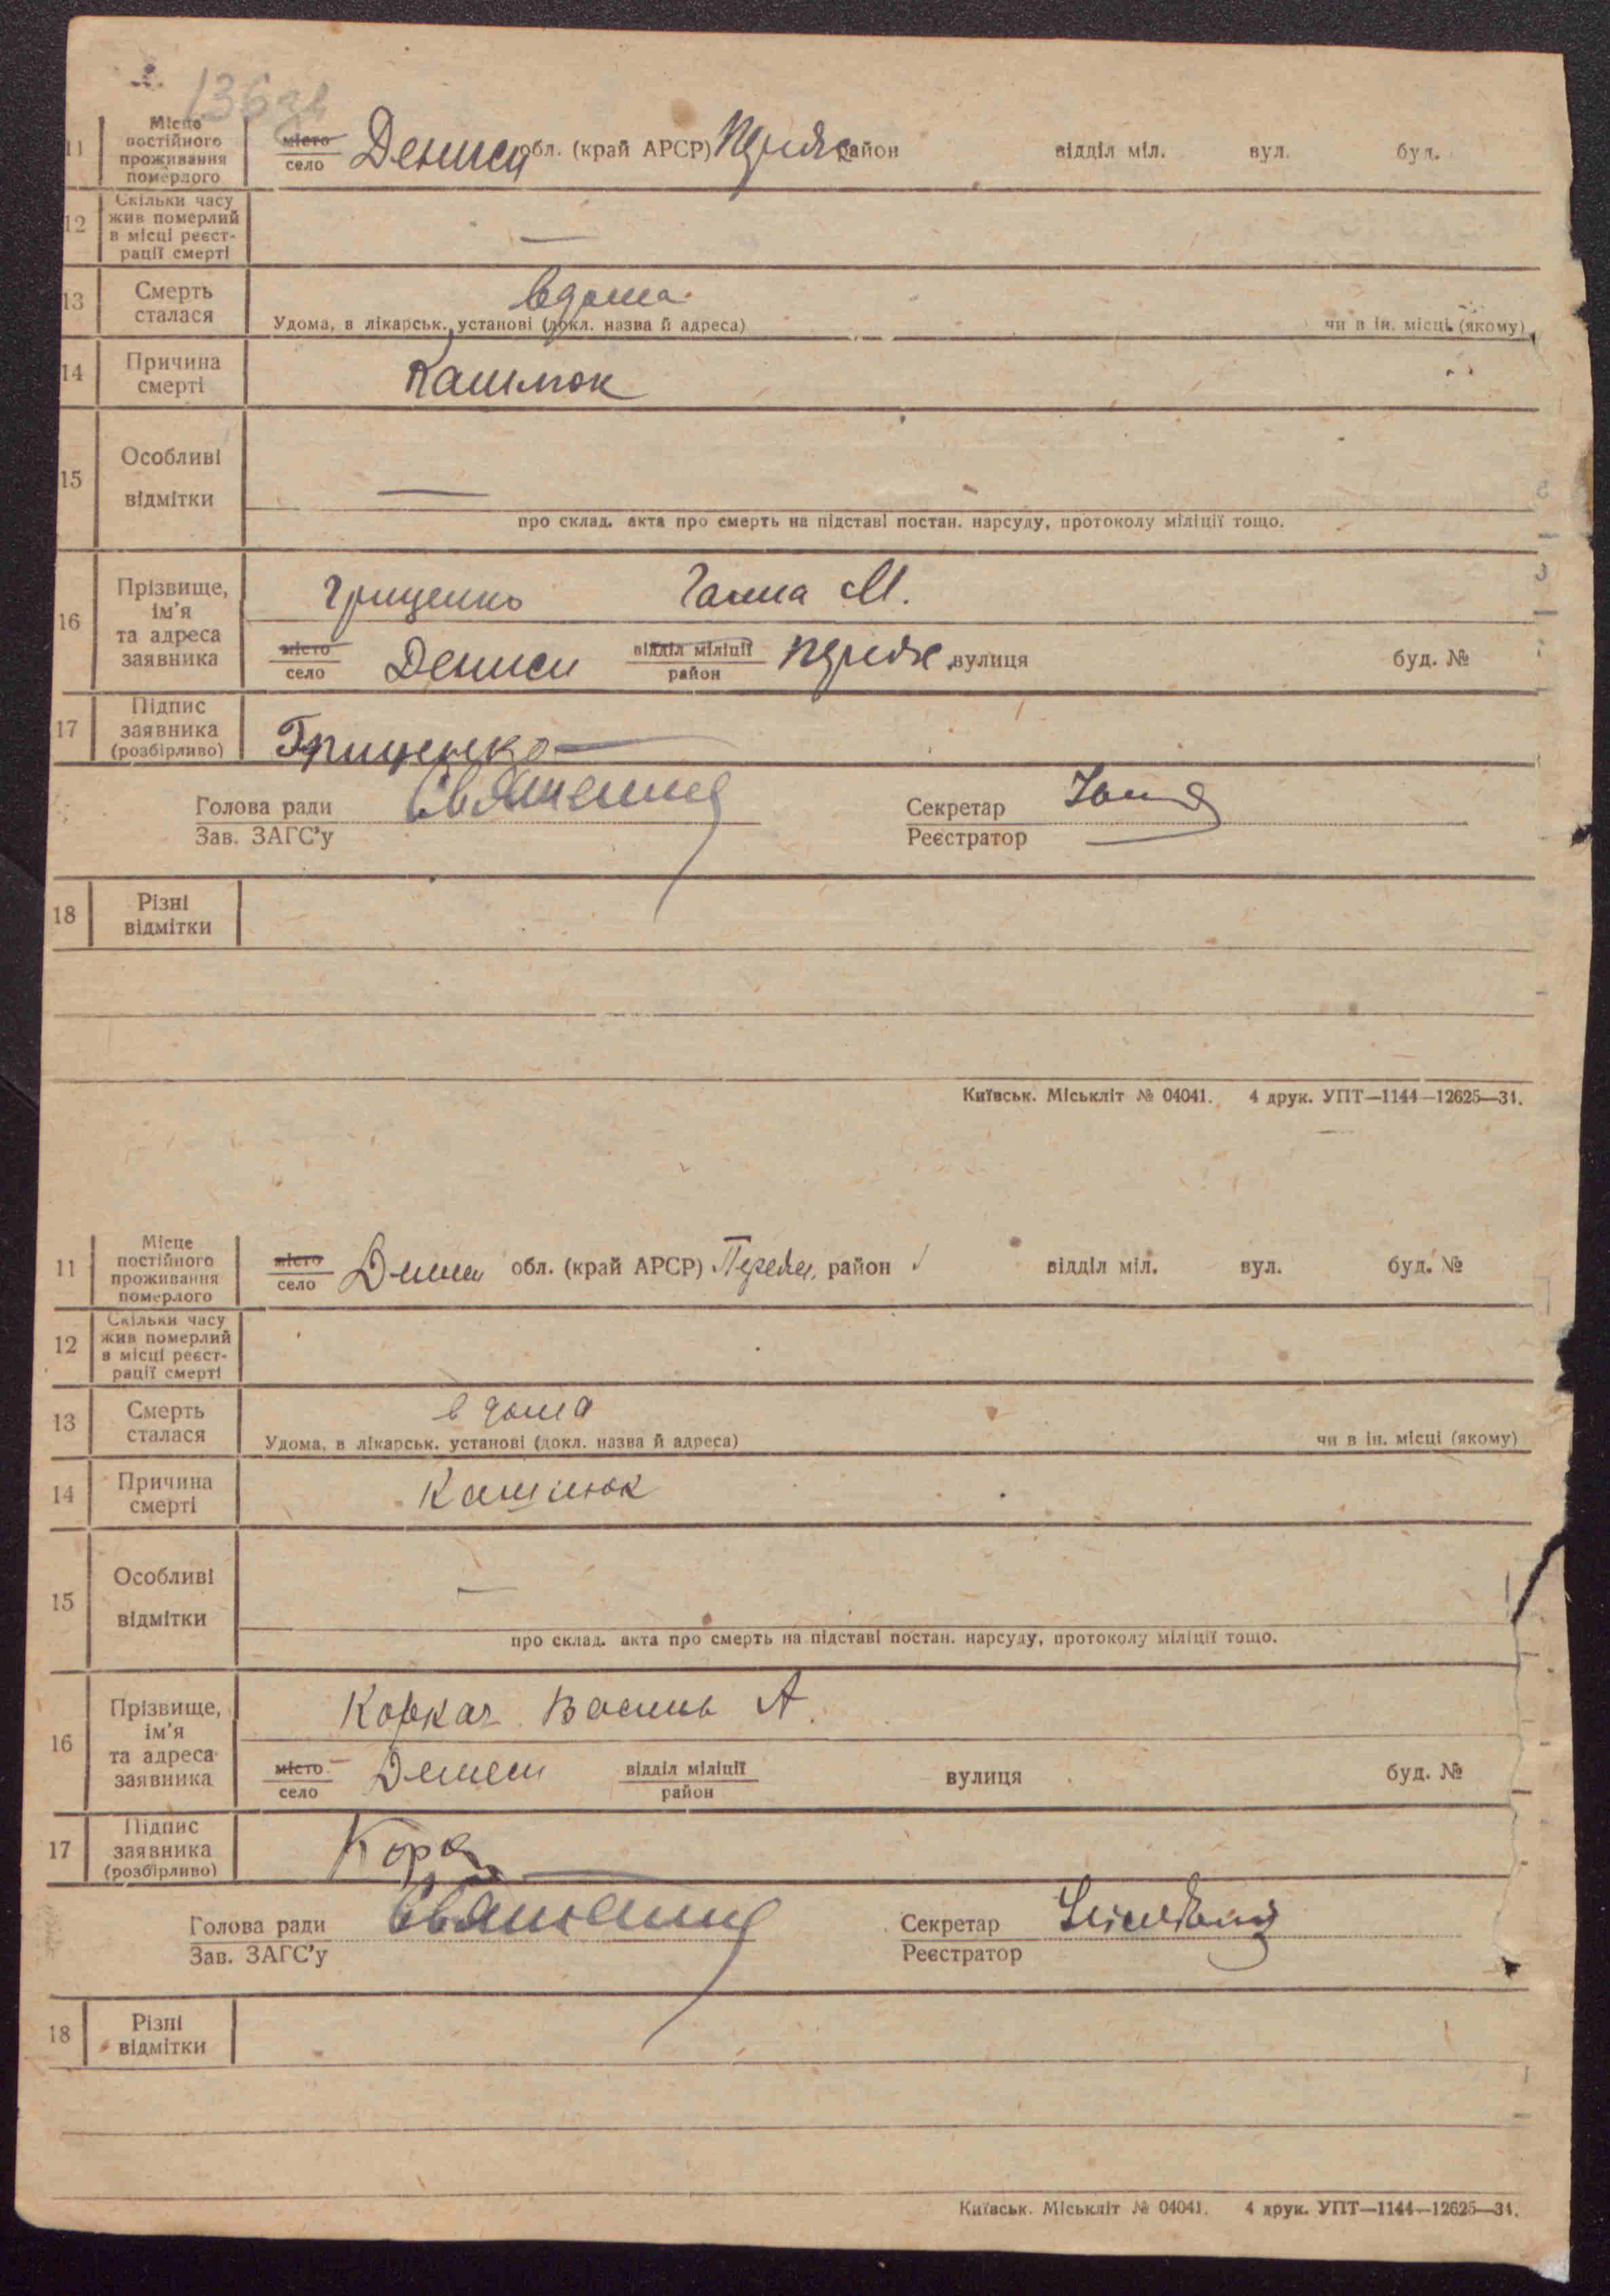 136 зв
11 Місце постійного проживання померлого
місто село Дениси обл. (край АРСР) район відділ міл. вул. буд.
12 Скільки часу жив померлий в місці реєстрації смерті —
13 Смерть сталася вдома
Удома, в лікарськ. установі (докл. назва й адреса) чи в ін. місці (якому)
14 Причина смерті Кашлюк
15 Особливі відмітки —
про склад. акта про смерть на підставі постан. нарсуду, протоколу міліції тощо.
16 Прізвище, ім'я та адреса заявника
Грищенко Ганна М.
місто село Дениси відділ міліції район вулиця буд. №
17 Підпис заявника (розбірливо) Грищенко
Голова ради
Секретар
Зав. ЗАГС'у
Реєстратор
18 Різні відмітки
Київськ. Міськліт № 04041. 4 друк. УПТ—1144—12625—31.
11 Місце постійного проживання померлого
місто село Дениси обл. (край АРСР) район відділ міл. вул. буд. №
12 Скільки часу жив померлий в місці реєстрації смерті
13 Смерть сталася в дома
Удома, в лікарськ. установі (докл. назва й адреса) чи в ін. місці (якому)
14 Причина смерті Кашлюк
15 Особливі відмітки —
про склад. акта про смерть на підставі постан. нарсуду, протоколу міліції тощо.
16 Прізвище, ім'я та адреса заявника
Василь А.
місто село Дениси відділ міліції район вулиця буд. №
17 Підпис заявника (розбірливо)
Голова ради
Секретар
Зав. ЗАГС'у
Реєстратор
18 Різні відмітки
Київськ. Міськліт № 04041. 4 друк. УПТ—1144—12625—31.